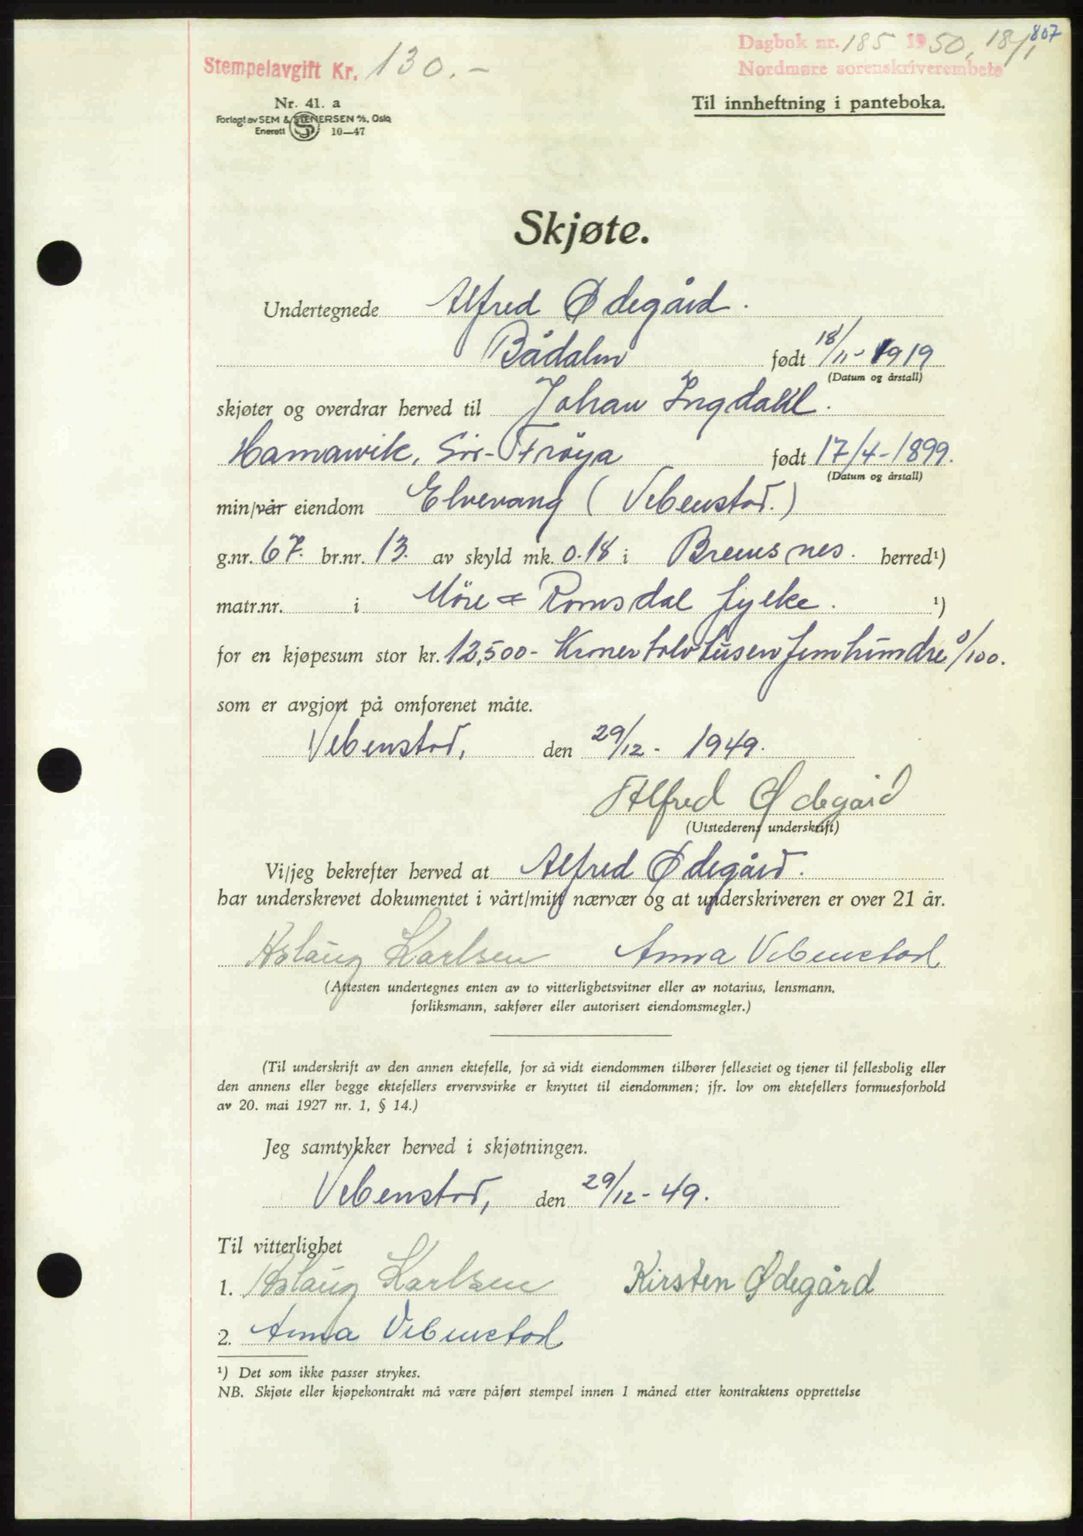 807
Stempelavgift Kr. 130.-
Dagbok nr. 185 1950, 18/1
Nordmøre sorenskriverembete
Nr. 41. a
Forlagt av SEM & STENERSEN A/S, Oslo
Enerett 10—47
Til innheftning i panteboka.
Skjøte.
Undertegnede Alfred Ødegård.
Bådalen født 18/11-1919
(Datum og årstall)
skjøter og overdrar herved til Johan Ingdahl.
Hamarvik, Sør-Frøya født 17/4-1899.
(Datum og årstall)
min/vår eiendom Elvevang (Vebenstad.)
g.nr. 67. br.nr. 13. av skyld mk. 0.18 i Bremsnes. herred¹)
matr.nr. i Møre & Romsdal fylke. ¹)
for en kjøpesum stor kr. 12,500- Kroner tolvtusenfemhundre 0/100.
som er avgjort på omforenet måte.
Vebenstad, den 29/12- 1949.
Alfred Ødegård
(Utstederens underskrift)
Vi/jeg bekrefter herved at Alfred Ødegård.
har underskrevet dokumentet i vårt/mitt nærvær og at underskriveren er over 21 år.
Aslaug Karlsen Anna Vebenstad
(Attesten undertegnes enten av to vitterlighetsvitner eller av notarius, lensmann,
forliksmann, sakfører eller autorisert eiendomsmegler.)
(Til underskrift av den annen ektefelle, for så vidt eiendommen tilhører felleseiet og tjener til fellesbolig eller
den annens eller begge ektefellers ervervsvirke er knyttet til eiendommen; jfr. lov om ektefellers formuesforhold
av 20. mai 1927 nr. 1, § 14.)
Jeg samtykker herved i skjøtningen.
Vebenstad, den 29/12-49.
Til vitterlighet
1. Aslaug Karlsen Kirsten Ødegård
2. Anna Vebenstad
¹) Det som ikke passer strykes.
NB. Skjøte eller kjøpekontrakt må være påført stempel innen 1 måned etter kontraktens opprettelse